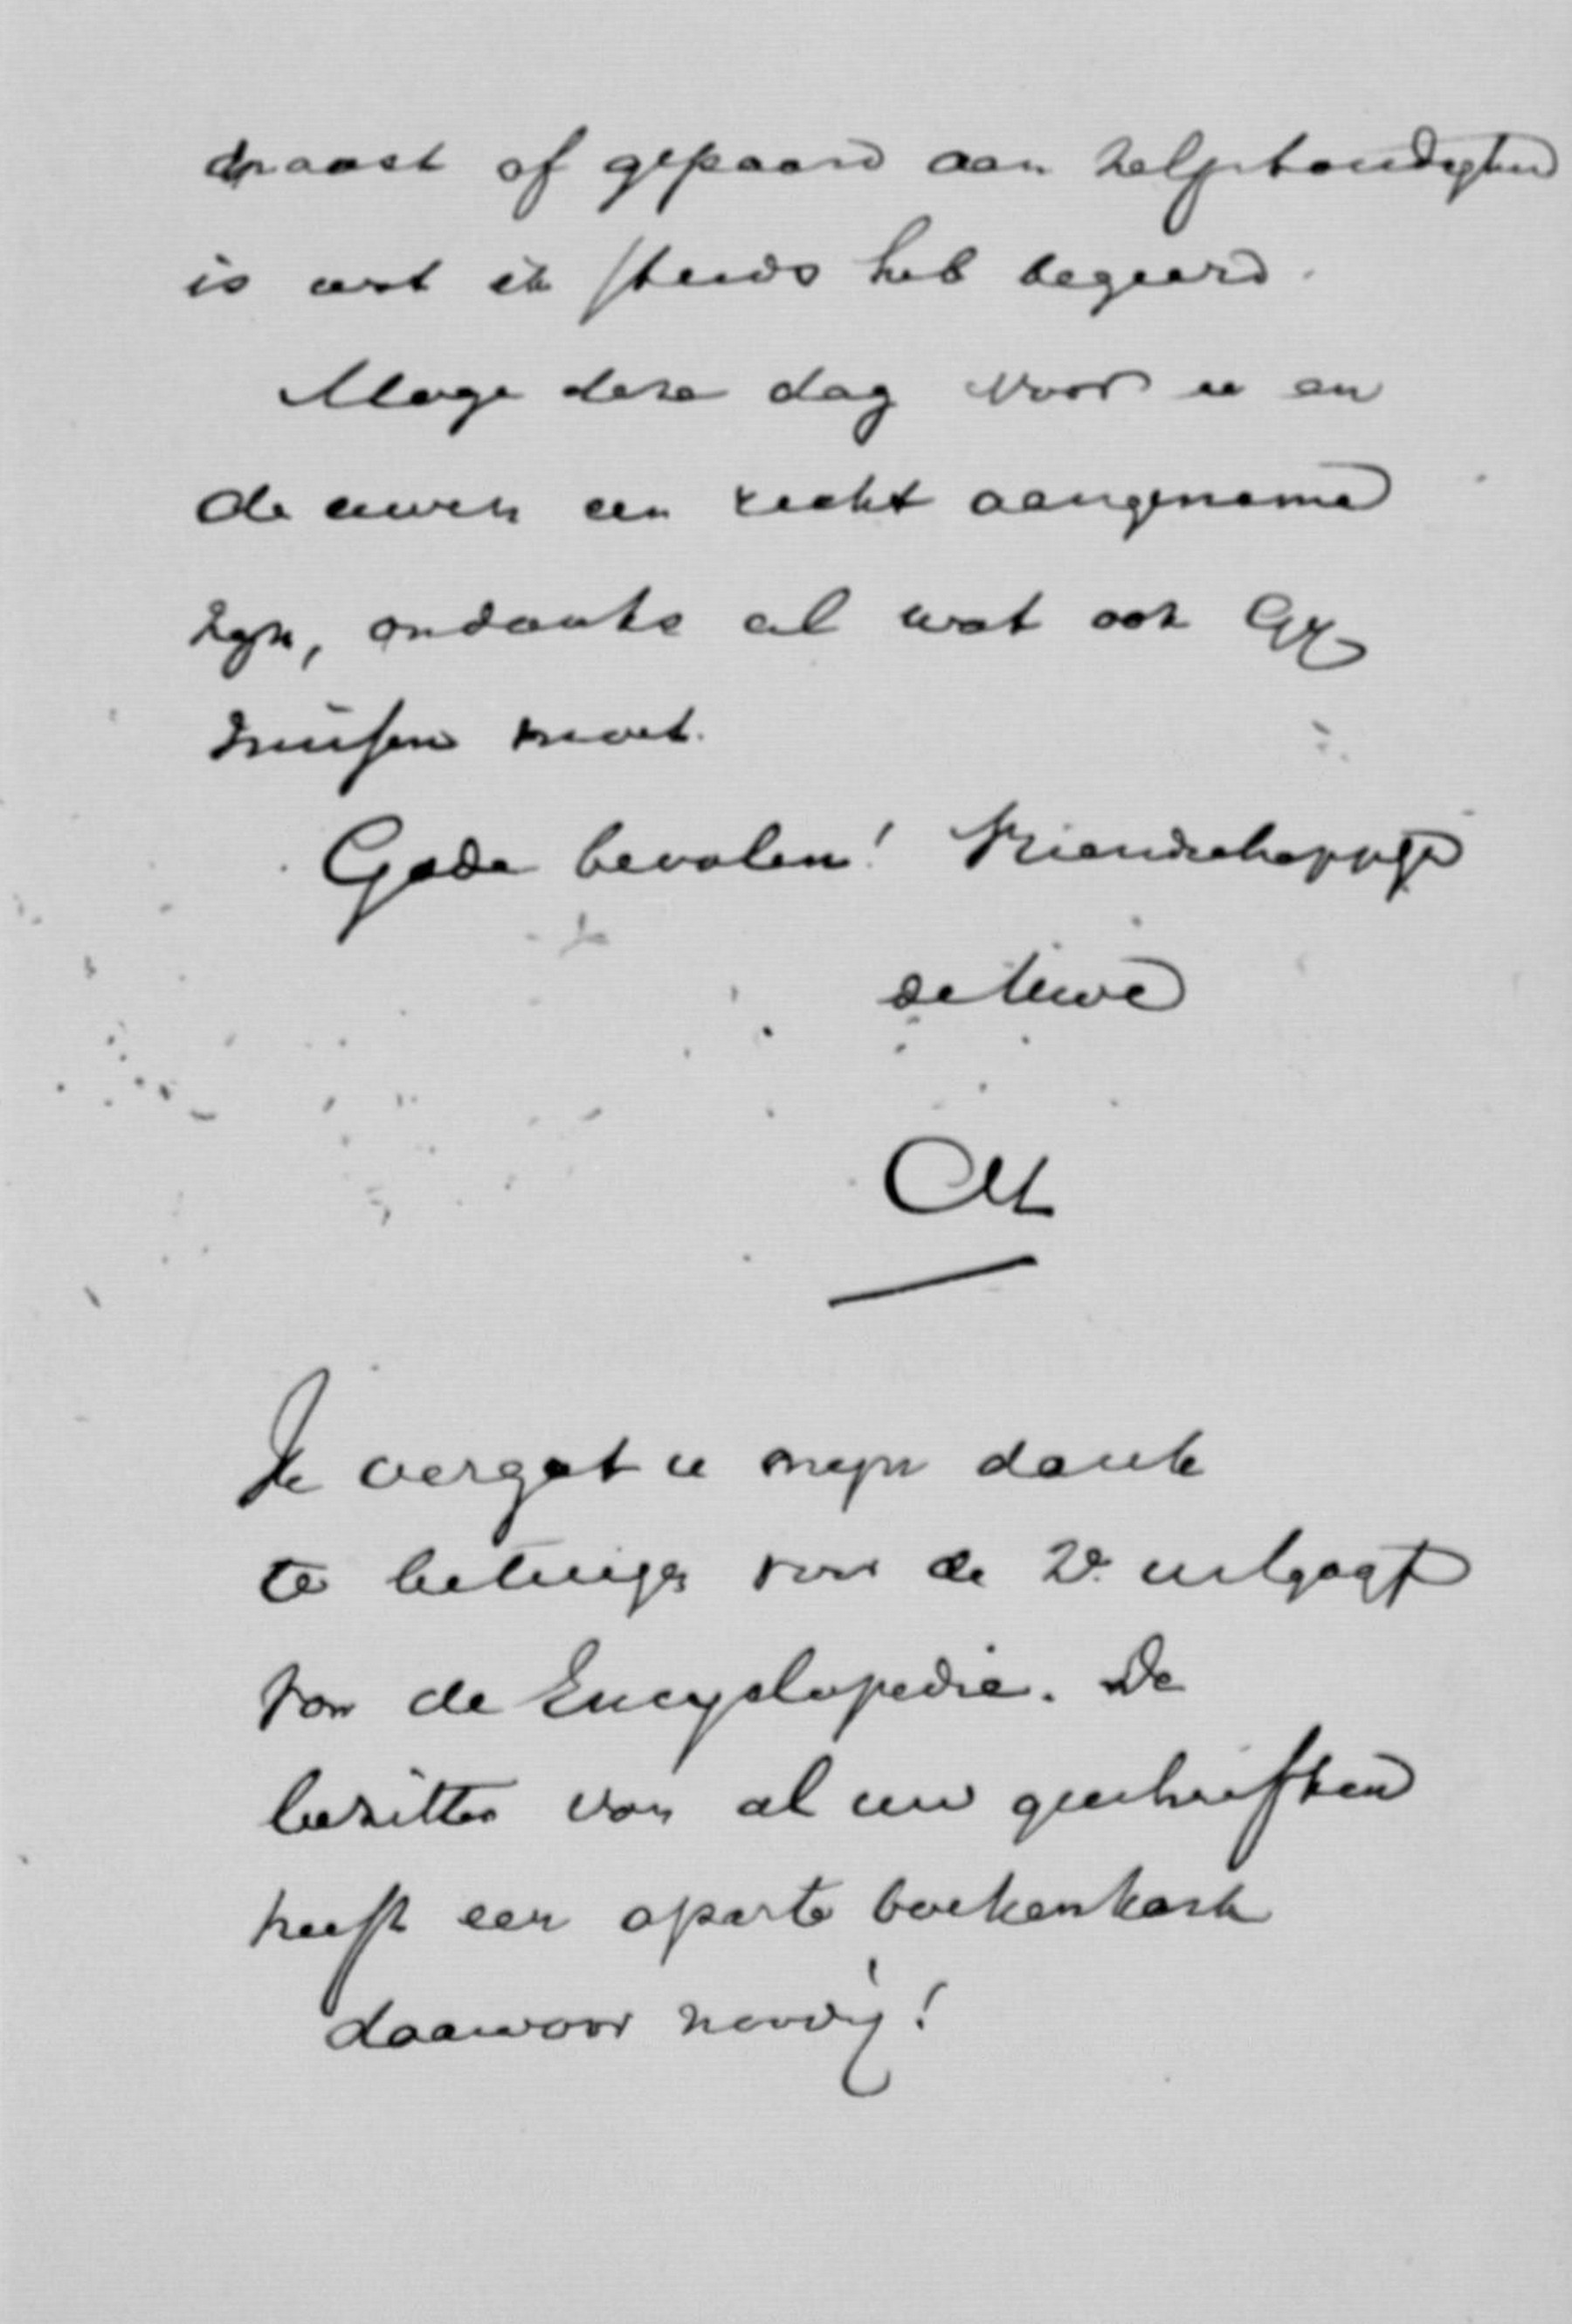 naast of gepaard aan zelfstandigheid
is wat ik steeds heb begeerd.
Moge deze dag voor u en
de uwen een recht aangename
zyn, ondanks al wat ook
moet.
Gode bevolen! Vriendschappelijk
de Uwe
Ik vergat u myn dank
te betuigen voor de 2e uitgaaf
van de Encyclopedie. De
bezitter van al uw geschriften
heeft een aparte boekenkast
daarvoor noodig!